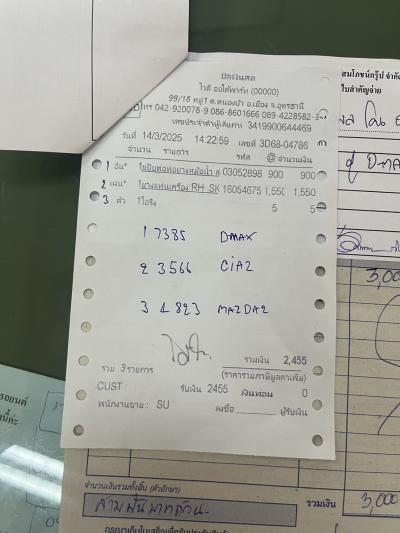 บิลเงินสด
ไวตี ออโต้พาร์ท (00000)
99/16 หมู่1 ต.หนองบัว อ.เมือง จ.อุดรธานี
โทร 042-920078-9 086-8601666 089-4228582-3
เลขประจำตัวผู้เสียภาษี 3419900644469
วันที่ 14/3/2025 14:22:59 เลขที่ 3D68-04786
จำนวน รายการ รหัส @ จำนวนเงิน
1 อัน* 03052898 900 900
2 แผ่น* 1ยางแท่นเครื่อง RH SK 16054675 1,550 1,550
3 ตัว 1โอริง 5 5
1 7385 DMAX
2 3566 CIAZ
3 1823 MAZDA2
รวมเงิน 2,455
รวม 3รายการ (ราคารวมภาษีมูลค่าเพิ่ม)
CUST: รับเงิน 2455 เงินทอน 0
พนักงานขาย: SU ลงชื่อ ผู้รับเงิน
ใบสำคัญจ่าย
3,00
จำนวนเงินรวมทั้งสิ้น (ตัวอักษร)
สามพันบาทถ้วน-
รวมเงิน 3,000